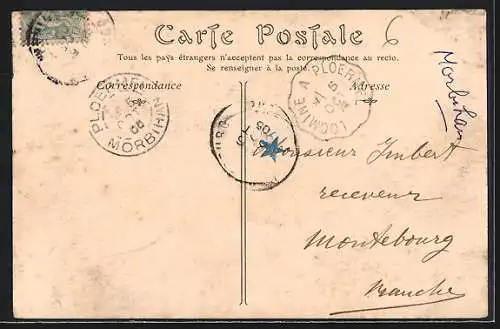 Carte Postale
6
Tous les pays étrangers n'acceptent pas la correspondance au recto.
Se renseigner à la poste.
Correspondance
Adresse
Morbihan
PLOERMEL
MORBIHAN
LOCMINE A PLOERMEL
Monsieur Imbert
receveur
Montebourg
Manche